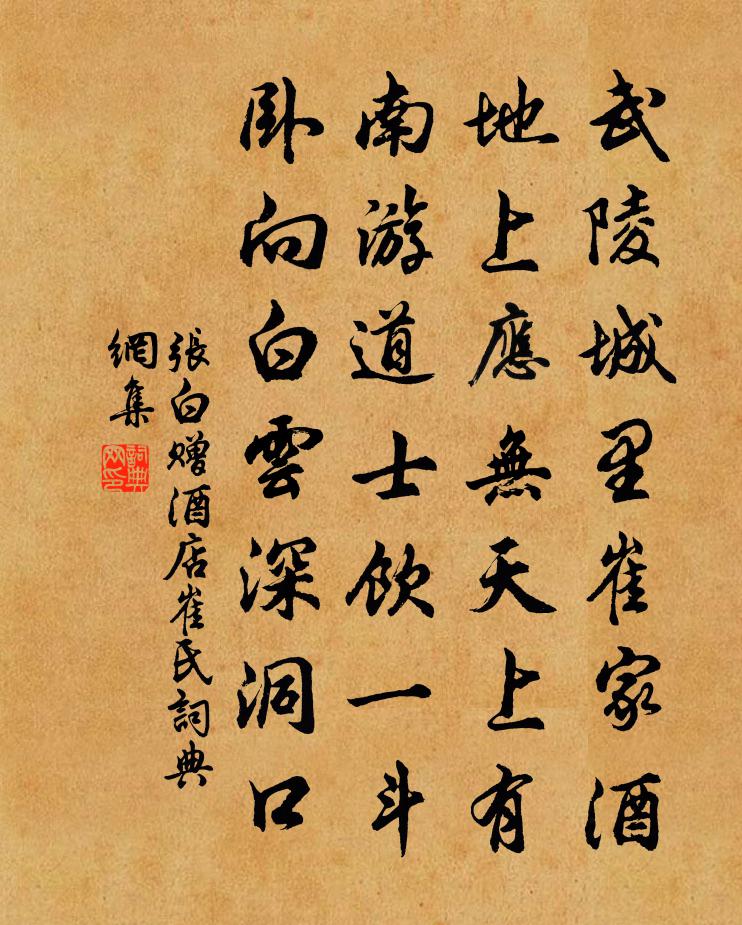 武陵城里崔家酒
地上應無天上有
南游道士飲一斗
卧向白雲深洞口
張白赠酒店崔氏詞典
網集
詞典
网印